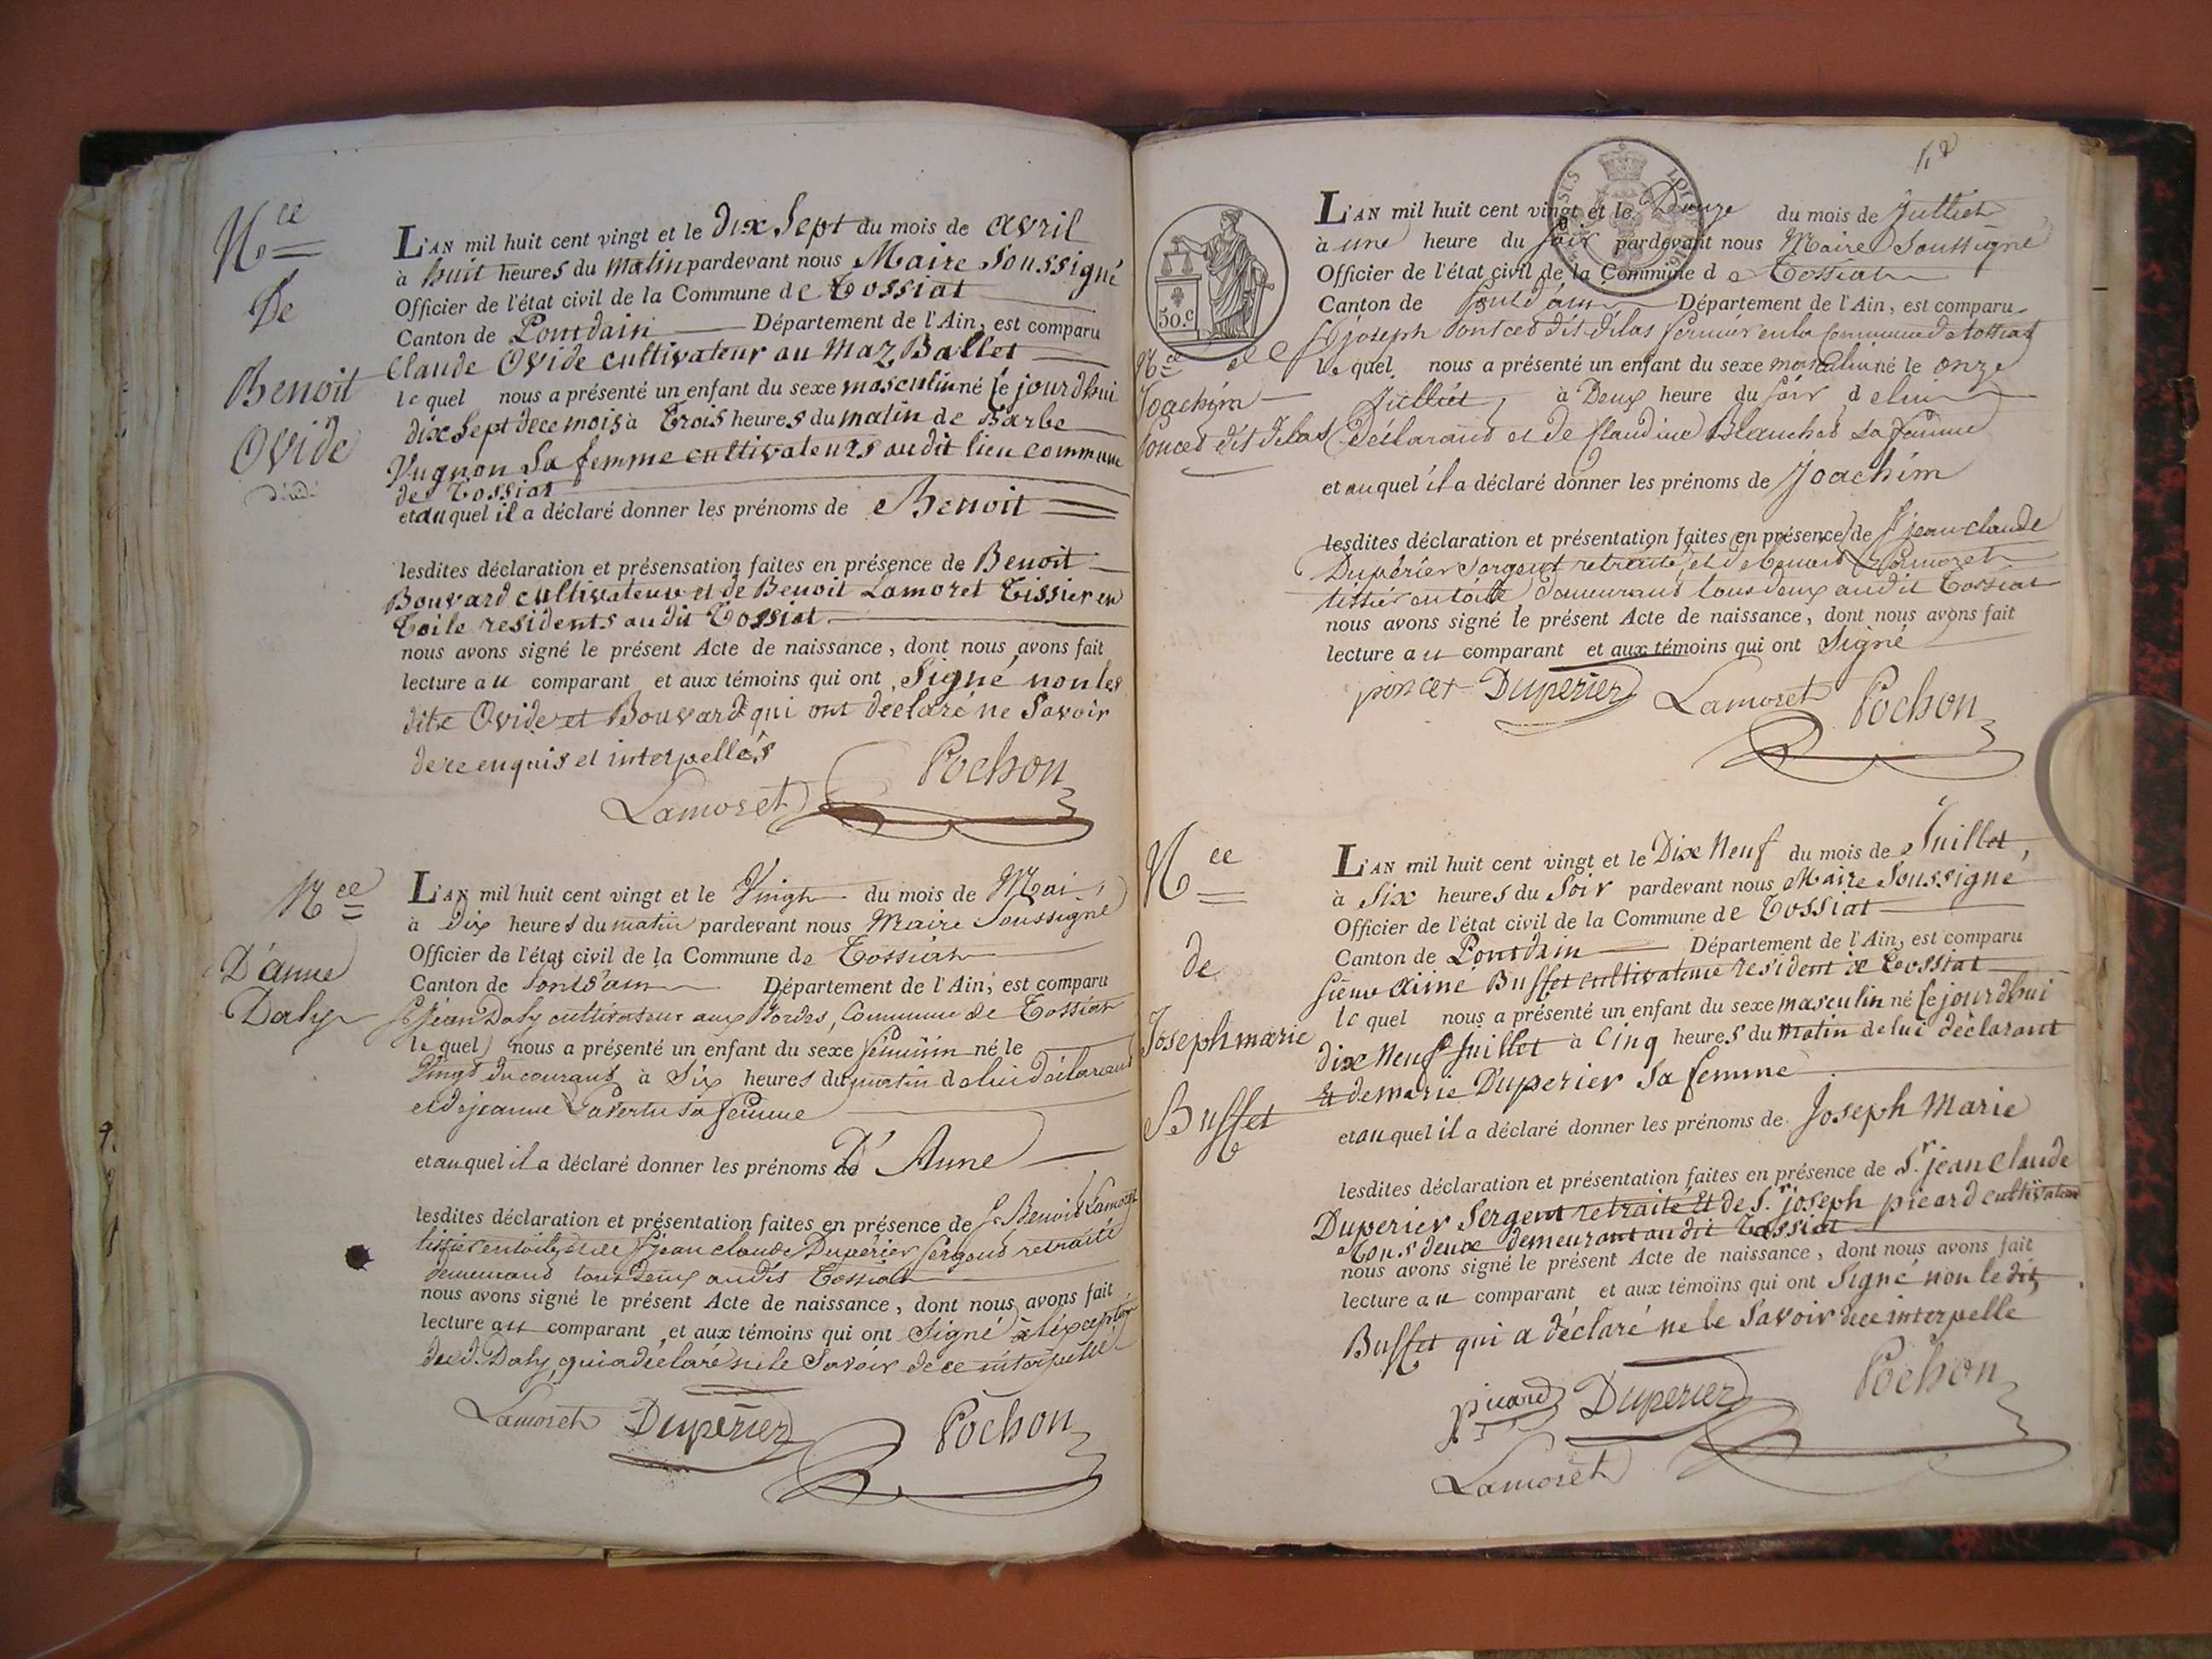 Nce
De
Benoit
Ovide
L'AN mil huit cent vingt et le dix Sept du mois de avril
à huit heures du matin pardevant nous Maire Soussigné
Officier de l'état civil de la Commune de Tossiat
Canton de Pontdain Département de l'Ain, est comparu
Claude Ovide cultivateur au Maz Ballet
lequel nous a présenté un enfant du sexe masculin né le jourdhui
dix Sept de ce mois à Trois heures du matin de Barbe
Vugnon Sa femme cultivateurs audit lieu commune
de Tossiat
et auquel il a déclaré donner les prénoms de Benoit
lesdites déclaration et présensation faites en présence de Benoit
Bouvard cultivateur et de Benoit Lamoret Tissier en
Toile residents au dit Tossiat
nous avons signé le présent Acte de naissance, dont nous avons fait
lecture au comparant et aux témoins qui ont Signé non les
dits Ovide et Bouvard qui ont déclaré ne Savoir
de ce enquis et interpellés
Pochon
Lamoret
Nce
D'anne
Daly
L'AN mil huit cent vingt et le Vingt du mois de Mai,
à Dix heures du matin pardevant nous Maire Soussigné
Officier de l'état civil de la Commune de Tossiat
Canton de Pontd'ain Département de l'Ain, est comparu
Sr jean Daly cultivateur aux Bordes, Commune de Tossiat
lequel nous a présenté un enfant du sexe féminin né le
Vingt du courant à Six heures du matin de lui déclarant
et de jeanne Lavertu sa femme
et auquel il a déclaré donner les prénoms de D' Anne
lesdites déclaration et présentation faites en présence de Sr Benoit Lamoret
tissier en toile, et de Sr jean claude Dupérier sergent retraité
demeurant tous Deux audit Tossiat
nous avons signé le présent Acte de naissance, dont nous avons fait
lecture au comparant, et aux témoins qui ont Signé à léxception
du d. Daly, qui a déclaré ne le Savoir de ce interpellé
Lamoret Duperier Pochon
50.c
Nce de
Joachim
Poncet dit Delas
L'AN mil huit cent vingt et le Douze du mois de Juillet
à une heure du soir pardevant nous Maire Soussigné
Officier de l'état civil de la Commune de Tossiat
Canton de Pontd'ain Département de l'Ain, est comparu
Sr joseph Poncet dit délas fermier en la Commune de tossiat
lequel nous a présenté un enfant du sexe masculin né le onze
Juillet, à Deux heure du soir de lui
Déclarant et de Claudine Blanchet sa femme
et auquel il a déclaré donner les prénoms de Joachim
lesdites déclaration et présentation faites en présence de Sr jean claude
Dupérier Sergent retraité, et de benoit Lamoret
tissier en toile demeurant tous deux audit Tossiat
nous avons signé le présent Acte de naissance, dont nous avons fait
lecture au comparant et aux témoins qui ont Signé
poncet Duperier Lamoret Pochon
Nce
de
Joseph marie
Buffet
L'AN mil huit cent vingt et le Dix Neuf du mois de Juillet,
à Six heures du Soir pardevant nous Maire Soussigné
Officier de l'état civil de la Commune de Tossiat
Canton de Pontdain Département de l'Ain, est comparu
Sieur aimé Buffet cultivateur resident à Tossiat
lequel nous a présenté un enfant du sexe masculin né le jourdhui
dix Neuf Juillet à Cinq heures du matin de lui déclarant
et de marie Duperier Sa femme
et auquel il a déclaré donner les prénoms de Joseph Marie
lesdites déclaration et présentation faites en présence de S.r jean Claude
Duperier Sergent retraité Et de S.r joseph picard cultivateur
Tous deux demeurant au dit Tossiat
nous avons signé le présent Acte de naissance, dont nous avons fait
lecture au comparant et aux témoins qui ont Signé non le dit
Buffet qui a déclaré ne le Savoir de ce interpellé
picard Duperier Pochon
Lamoret